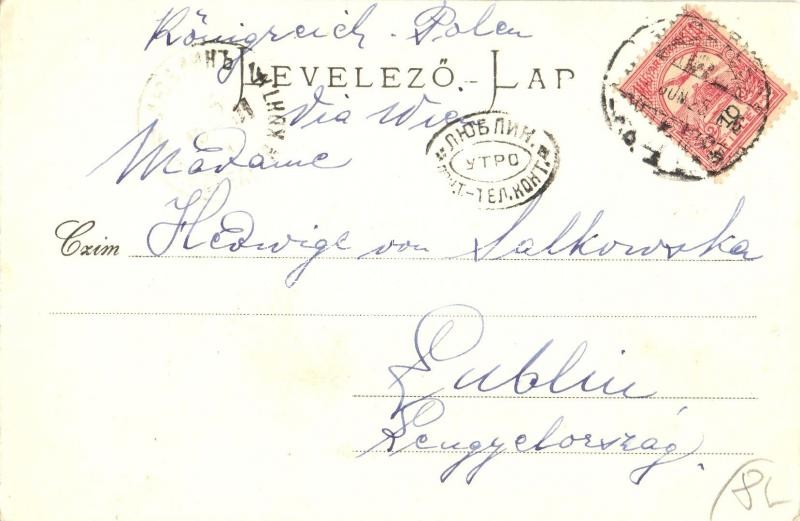 Königreich - Polen
LEVELEZŐ-LAP
Via Wien
ЛЮБЛИН.
УТРО
ПОЧТ-ТЕЛ.КОНТ.
Madame
Czim Hedwige von Salkowska
Lublin
Lengyelország.